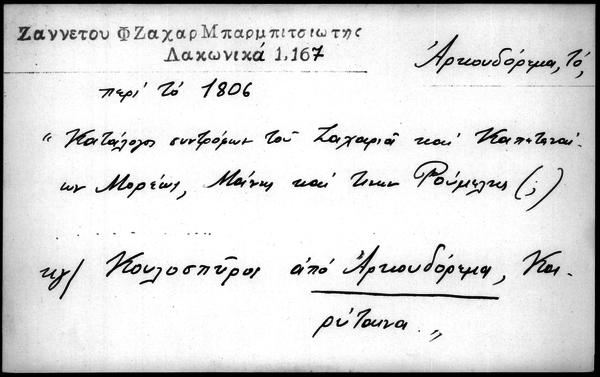 Ζαννετου Φ Ζαχαρ Μπαρμπιτσιωτης
Λακωνικά 1,167
Ἀρκουδόρεμα, τό,
περί τό 1806
" Κατάλογος συντρόφων τοῦ Ζαχαριᾶ καί Καπεταναί-
ων Μορέως, Μάνης καί τινων Ρούμελης (;)
κγ/ Κουλοσπῦρος ἀπό Ἀρκουδόρεμα, Κα-
ρύταινα "